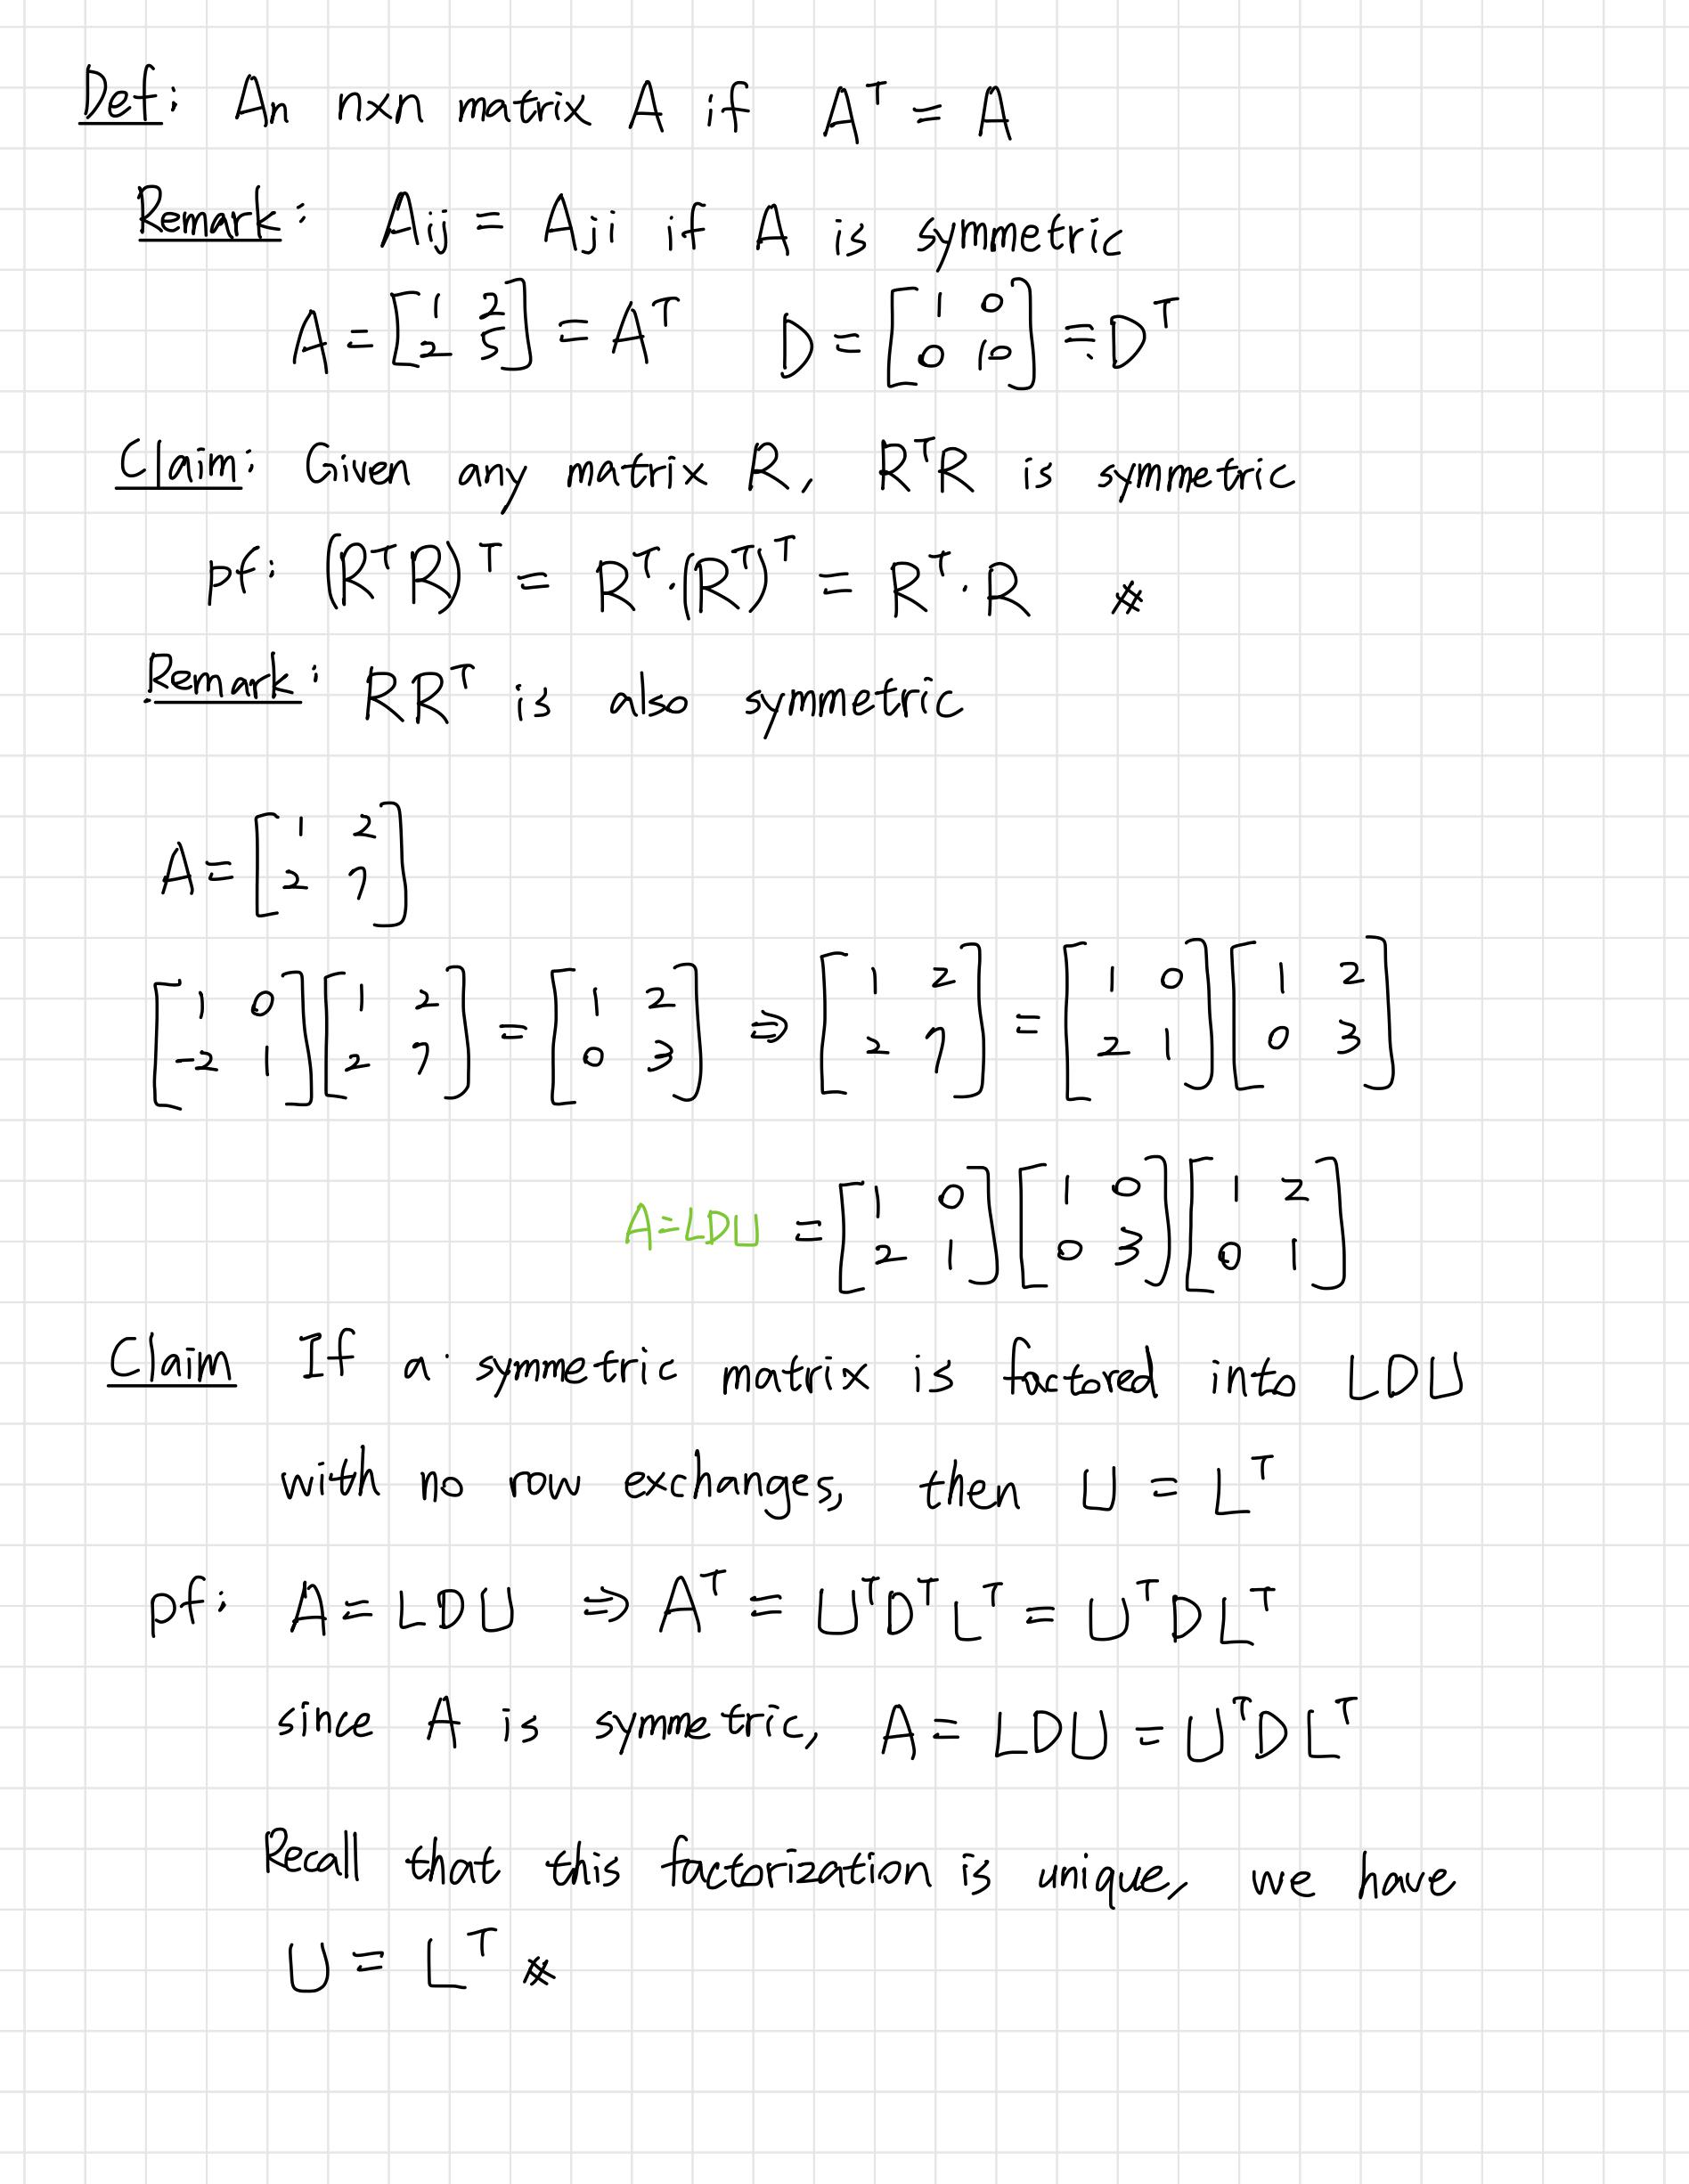 Def: An nxn matrix A if Aᵀ = A
Remark: Aij = Aji if A is symmetric
A = [1 2; 2 5] = Aᵀ D = [1 0; 0 10] = Dᵀ
Claim: Given any matrix R, RᵀR is symmetric
pf: (RᵀR)ᵀ = Rᵀ·(Rᵀ)ᵀ = Rᵀ·R ※
Remark: RRᵀ is also symmetric
A = [1 2; 2 7]
[1 0; -2 1][1 2; 2 7] = [1 2; 0 3] ⇒ [1 2; 2 7] = [1 0; 2 1][1 2; 0 3]
A=LDU = [1 0; 2 1][1 0; 0 3][1 2; 0 1]
Claim If a symmetric matrix is factored into LDU
with no row exchanges, then U = Lᵀ
pf: A = LDU ⇒ Aᵀ = UᵀDᵀLᵀ = UᵀDLᵀ
since A is symmetric, A = LDU = UᵀDLᵀ
Recall that this factorization is unique, we have
U = Lᵀ ※